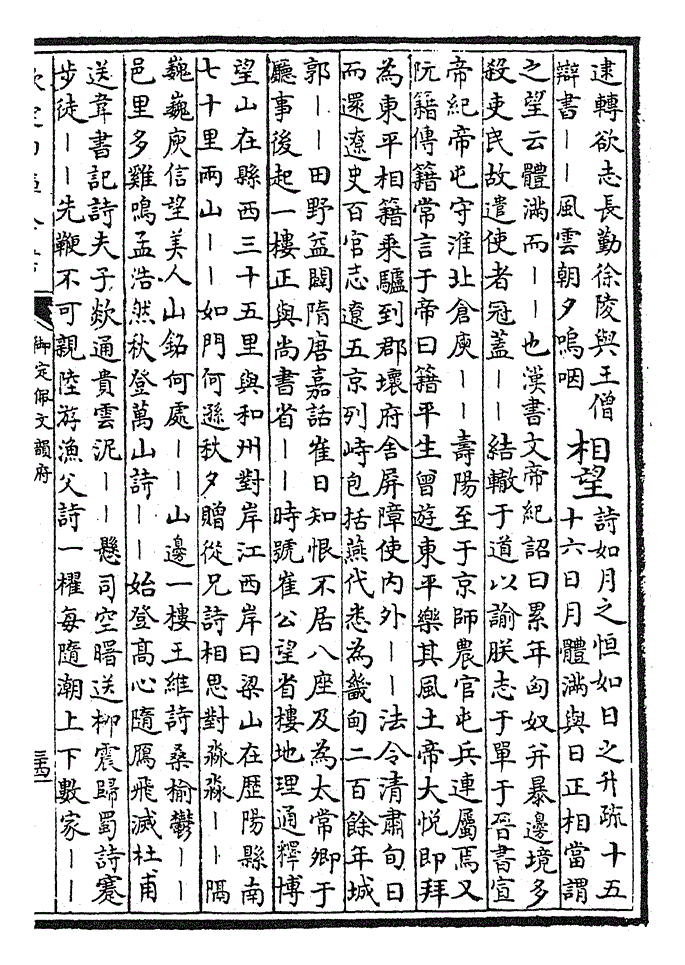 逮轉欲志長勤徐陵與王僧
辯書丨丨風雲朝夕嗚咽
相望
詩如月之恒如日之升疏十五
十六日月體滿與日正相當謂
之望云體滿而丨丨也漢書文帝紀詔曰累年匈奴并暴邊境多
殺吏民故遣使者冠蓋丨丨結轍于道以諭朕志于單于晉書宣
帝紀帝屯守淮北倉庾丨丨壽陽至于京師農官屯兵連屬焉又
阮籍傳籍常言于帝曰籍平生曾遊東平樂其風土帝大悅即拜
為東平相籍乘驢到郡壞府舍屏障使內外丨丨法令清肅旬日
而還遼史百官志遼五京列峙包括燕代悉為畿甸二百餘年城
郭丨丨田野益闢隋唐嘉話崔日知恨不居八座及為太常卿于
廳事後起一樓正與尚書省丨丨時號崔公望省樓地理通釋博
望山在縣西三十五里與和州對岸江西岸曰梁山在歷陽縣南
七十里兩山丨丨如門何遜秋夕贈從兄詩相思對淼淼丨丨隔
巍巍庾信望美人山銘何處丨丨山邊一樓王維詩桑榆鬱丨丨
邑里多雞鳴孟浩然秋登萬山詩丨丨始登高心隨鴈飛滅杜甫
送韋書記詩夫子欻通貴雲泥丨丨懸司空曙送柳震歸蜀詩蹇
步徒丨丨先鞭不可親陸游漁父詩一櫂每隨潮上下數家丨丨
御定佩文韻府